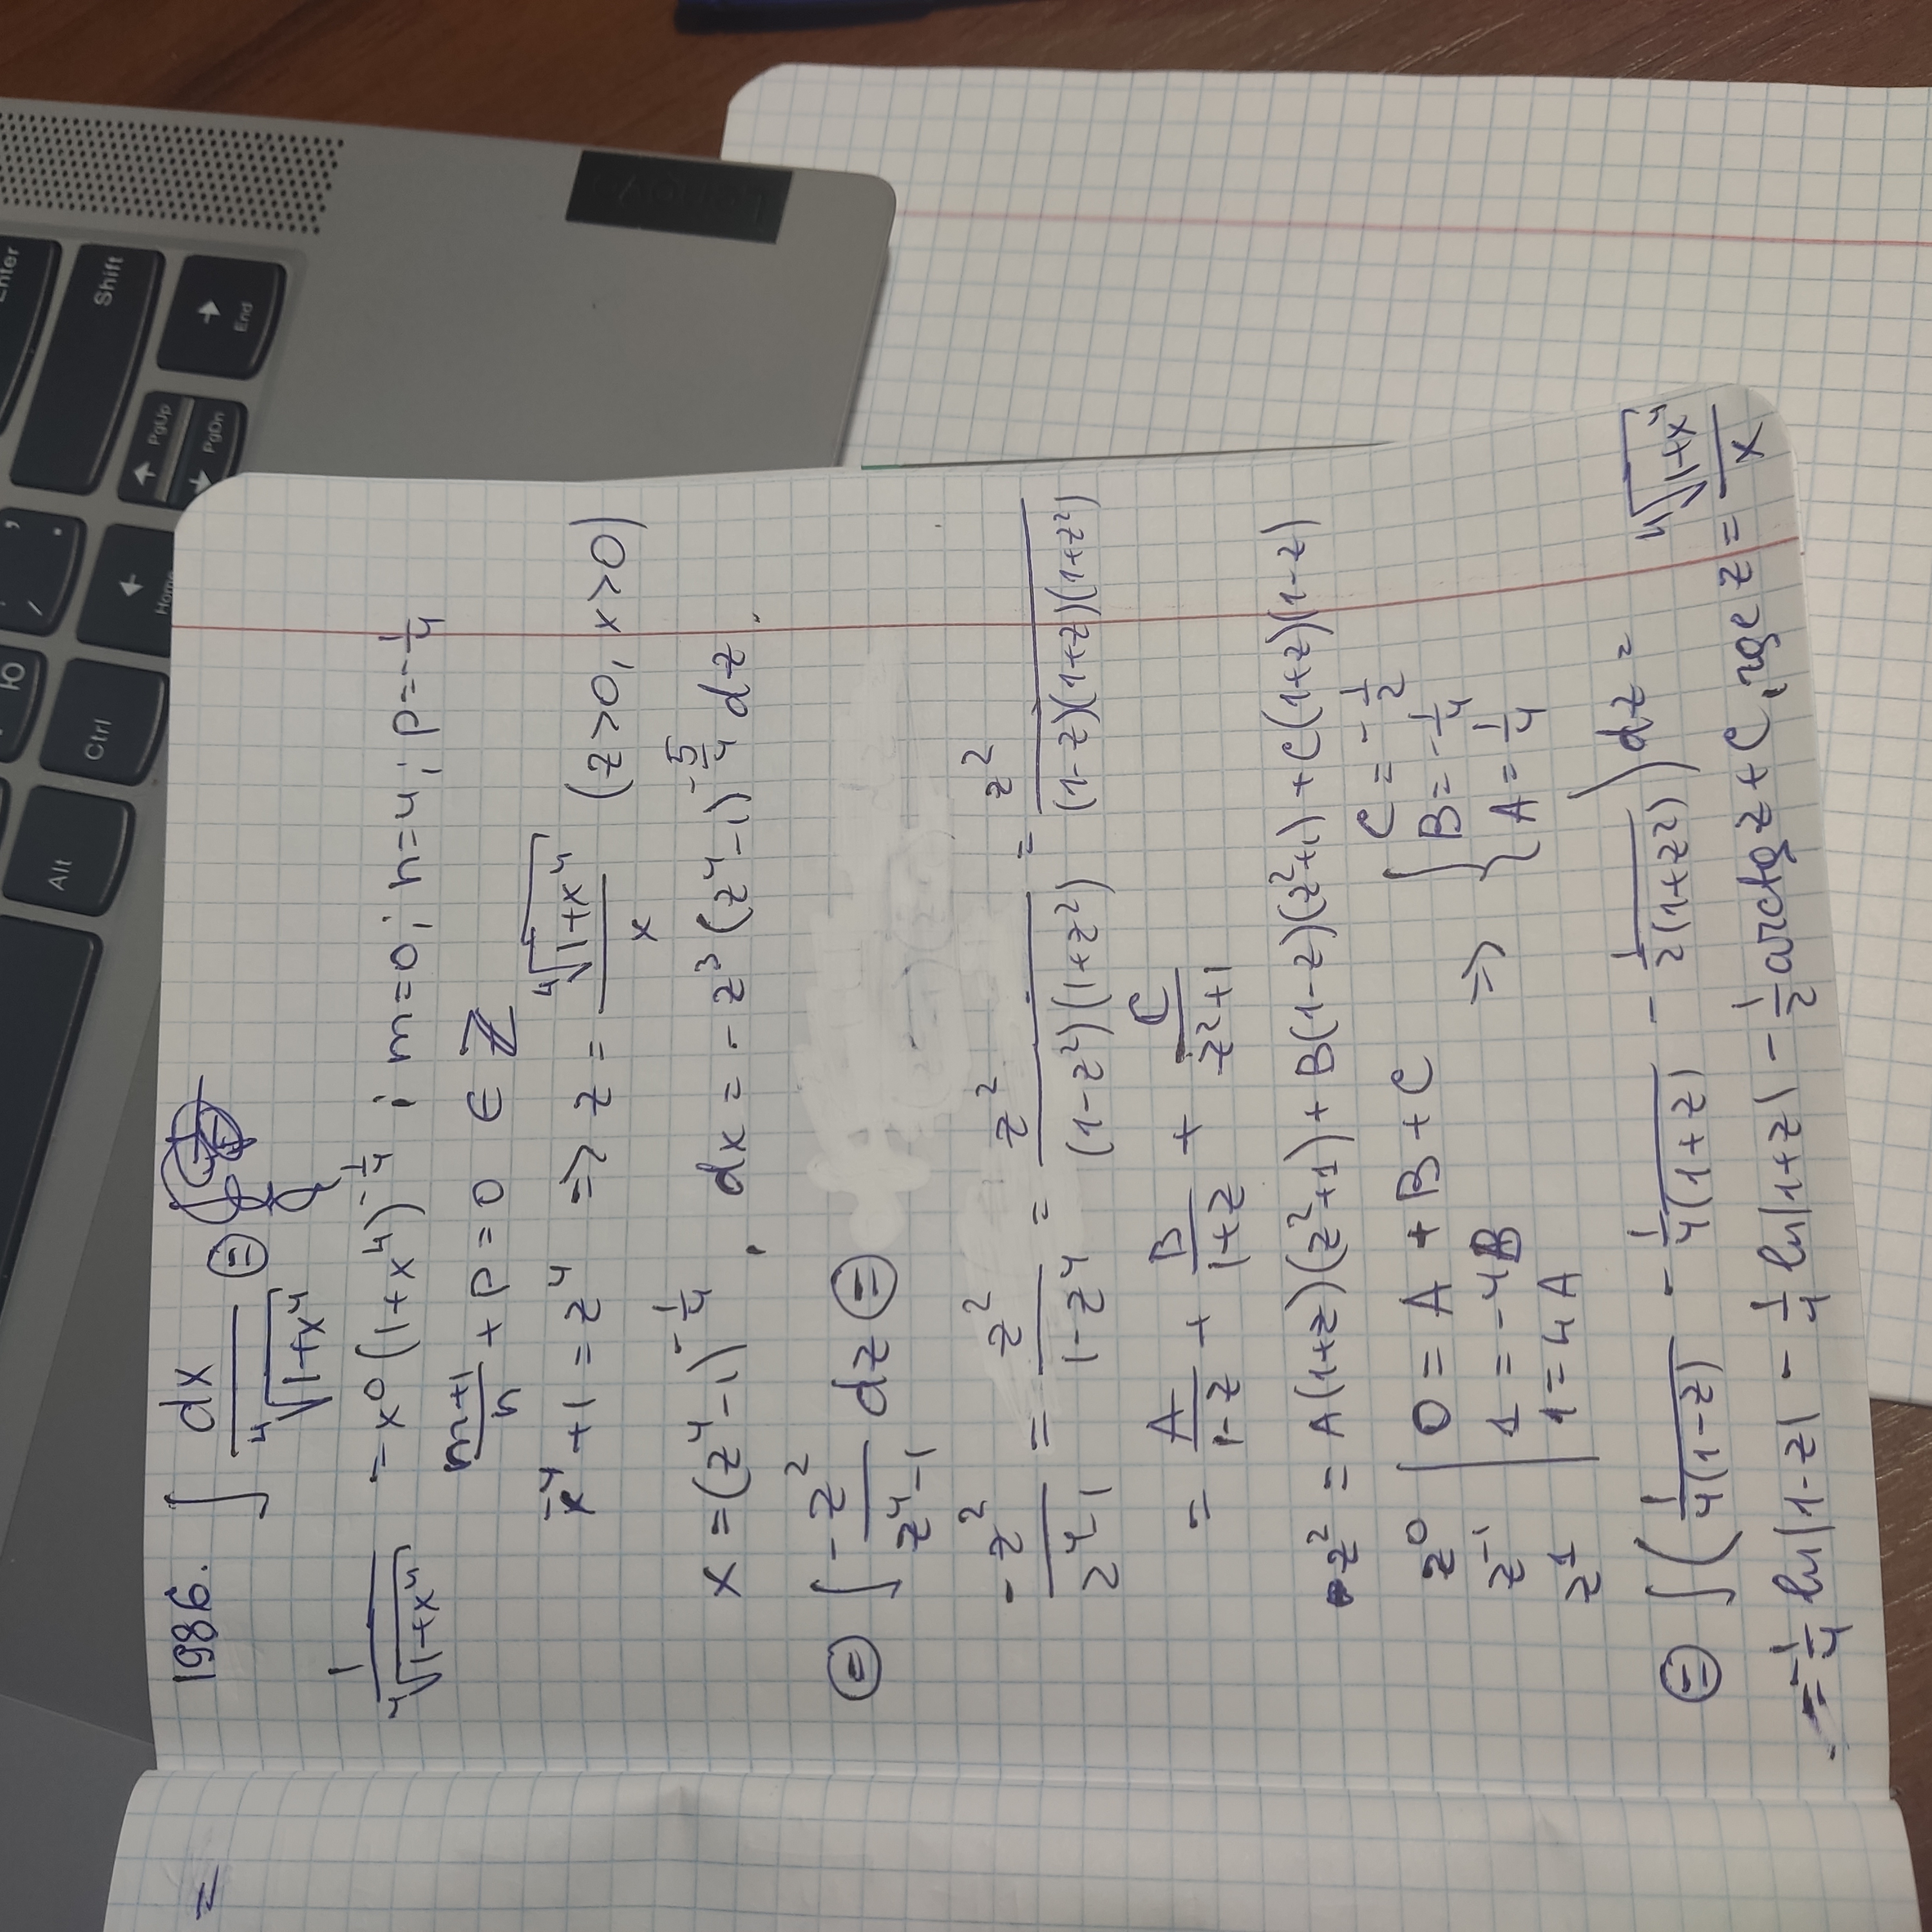 Ю
Enter
Alt
Ctrl
Shift
Home
PgUp
PgDn
End
=
1986. ∫ dx / ⁴√(1+x⁴) ⊜
1 / ⁴√(1+x⁴) = x⁰ (1+x⁴)^(-1/4) ; m=0; n=4; p=-1/4
(m+1)/n + p = 0 ∈ ℤ
x⁻⁴ + 1 = z⁴ => z = ⁴√(1+x⁴) / x (z>0, x>0)
x = (z⁴-1)^(-1/4), dx = -z³ (z⁴-1)^(-5/4) dz.
⊜ ∫ -z² / (z⁴-1) dz ⊜
-z² / (z⁴-1) = z² / (1-z⁴) = z² / ((1-z²)(1+z²)) = z² / ((1-z)(1+z)(1+z²))
= A / (1-z) + B / (1+z) + C / (z²+1)
z² = A(1+z)(z²+1) + B(1-z)(z²+1) + C(1+z)(1-z)
z⁰ | 0 = A + B + C => { C = -1/2
z⁻¹ | 1 = -4B B = -1/4
z¹ | 1 = 4A A = 1/4
⊜ ∫ ( 1 / (4(1-z)) - 1 / (4(1+z)) - 1 / (2(1+z²)) ) dz =
= -1/4 ln|1-z| - 1/4 ln|1+z| - 1/2 arctg z + C, где z = ⁴√(1+x⁴) / x